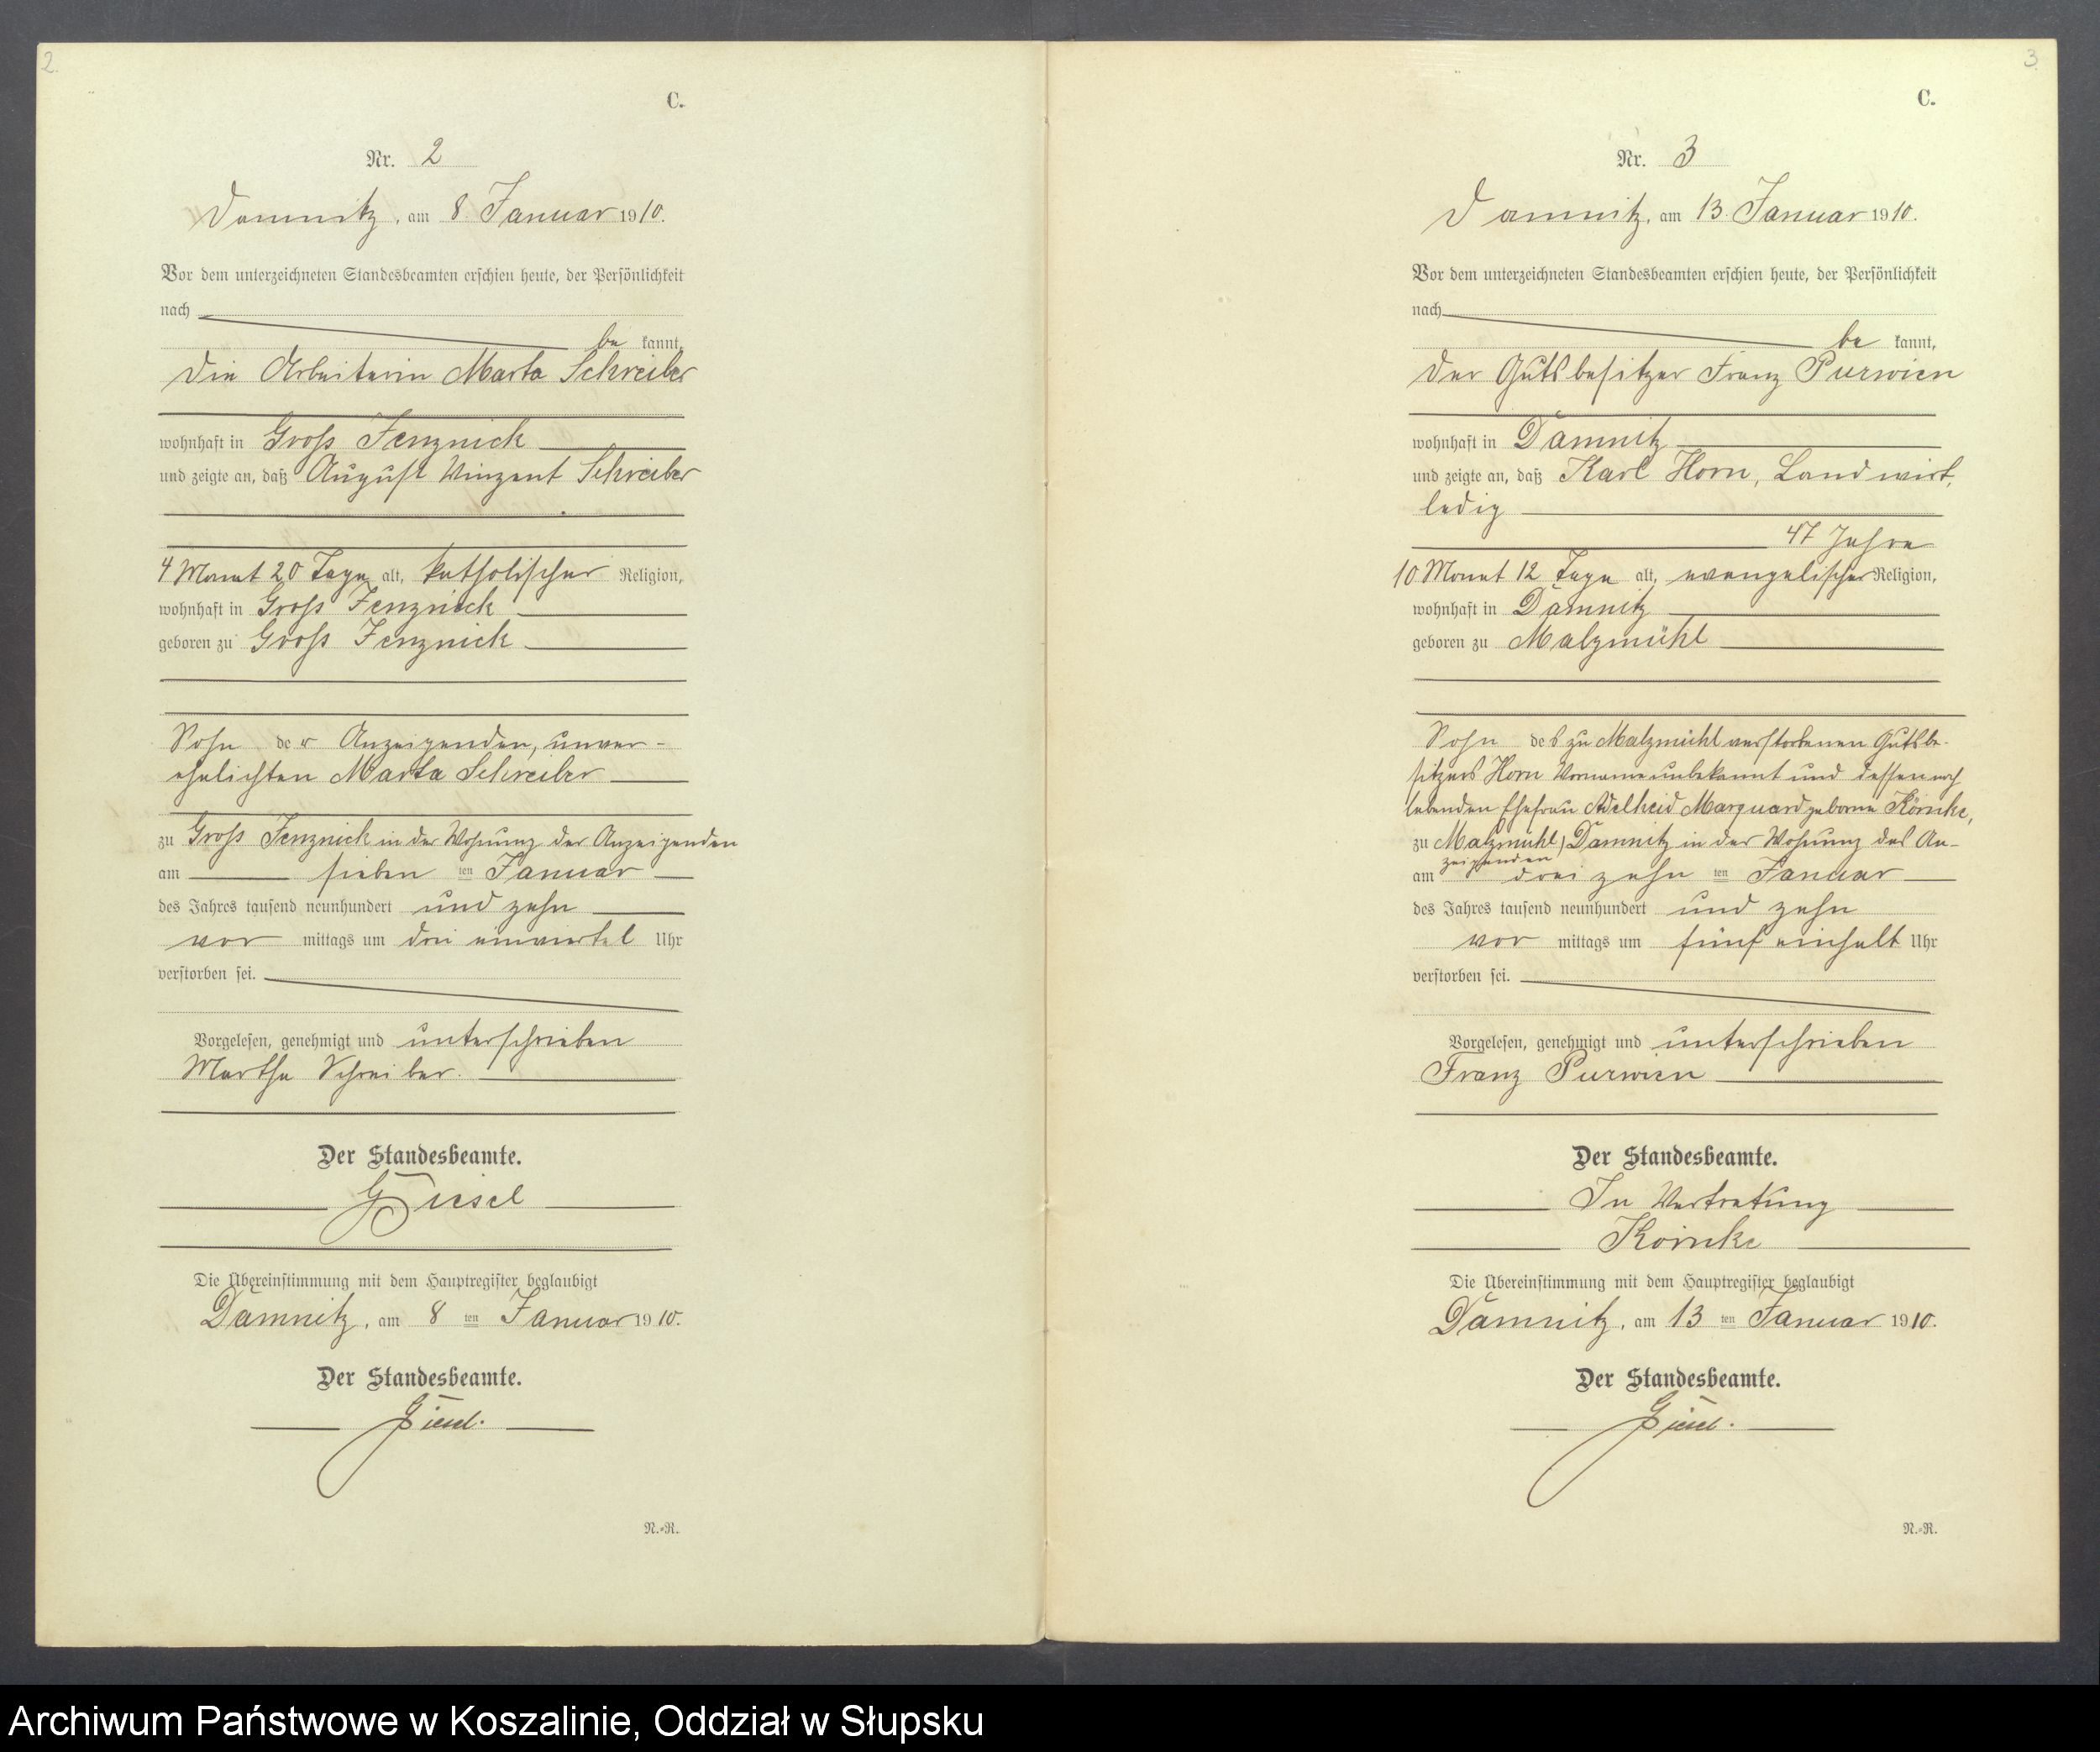 2.
C.
Nr. 2
Damnitz, am 8. Januar 1910.
Vor dem unterzeichneten Standesbeamten erschien heute, der Persönlichkeit
nach
be kannt,
die Arbeiterin Marta Schreiber
wohnhaft in Gross Jenznick
und zeigte an, daß August Winzent Schreiber
4 Monat 20 Tage alt, katholischer Religion,
wohnhaft in Gross Jenznick
geboren zu Gross Jenznick
Sohn der Anzeigenden, unver-
ehelichten Marta Schreiber
zu Gross Jenznick in der Wohnung der Anzeigenden
am sieben ten Januar
des Jahres tausend neunhundert und zehn
vor mittags um drei einviertel Uhr
verstorben sei.
Vorgelesen, genehmigt und unterschrieben
Martha Schreiber.
Der Standesbeamte.
Giesel
Die Übereinstimmung mit dem Hauptregister beglaubigt
Damnitz, am 8 ten Januar 1910.
Der Standesbeamte.
Giesel.
N.-R.
3.
C.
Nr. 3
Damnitz, am 13. Januar 1910.
Vor dem unterzeichneten Standesbeamten erschien heute, der Persönlichkeit
nach
be kannt,
der Gutsbesitzer Franz Purwien
wohnhaft in Damnitz
und zeigte an, daß Karl Horn, Landwirt,
ledig
47 Jahre
10 Monat 12 Tage alt, evangelischer Religion,
wohnhaft in Damnitz
geboren zu Malzmühl
Sohn des zu Malzmühl verstorbenen Gutsbe-
sitzers Horn Vorname unbekannt und dessen noch
lebenden Ehefrau Adelheid Marquard geborne Körnke,
zu Malzmühl, Damnitz in der Wohnung des An-
zeigenden
am dreizehn ten Januar
des Jahres tausend neunhundert und zehn
vor mittags um fünf einhalb Uhr
verstorben sei.
Vorgelesen, genehmigt und unterschrieben
Franz Purwien
Der Standesbeamte.
In Vertretung
Körnke
Die Übereinstimmung mit dem Hauptregister beglaubigt
Damnitz, am 13 ten Januar 1910.
Der Standesbeamte.
Giesel.
N.-R.
Archiwum Państwowe w Koszalinie, Oddział w Słupsku